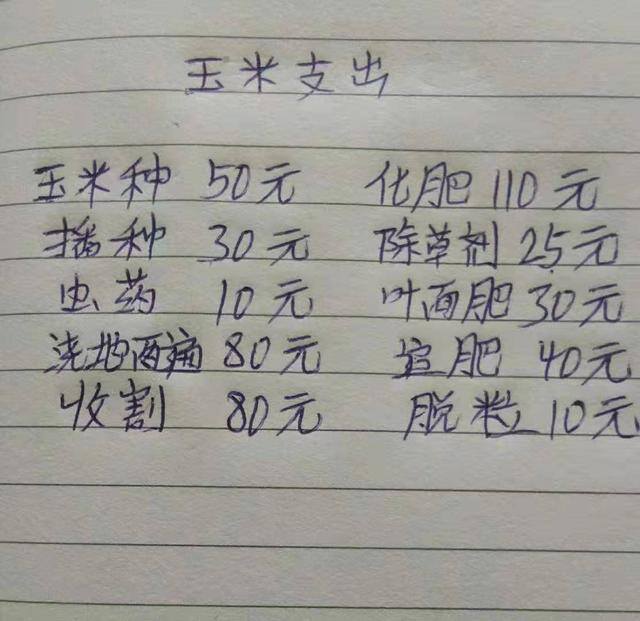 玉米支出
玉米种 50元 化肥 110元
播种 30元 除草剂 25元
虫药 10元 叶面肥 30元
浇地两遍 80元 追肥 40元
收割 80元 脱粒 10元